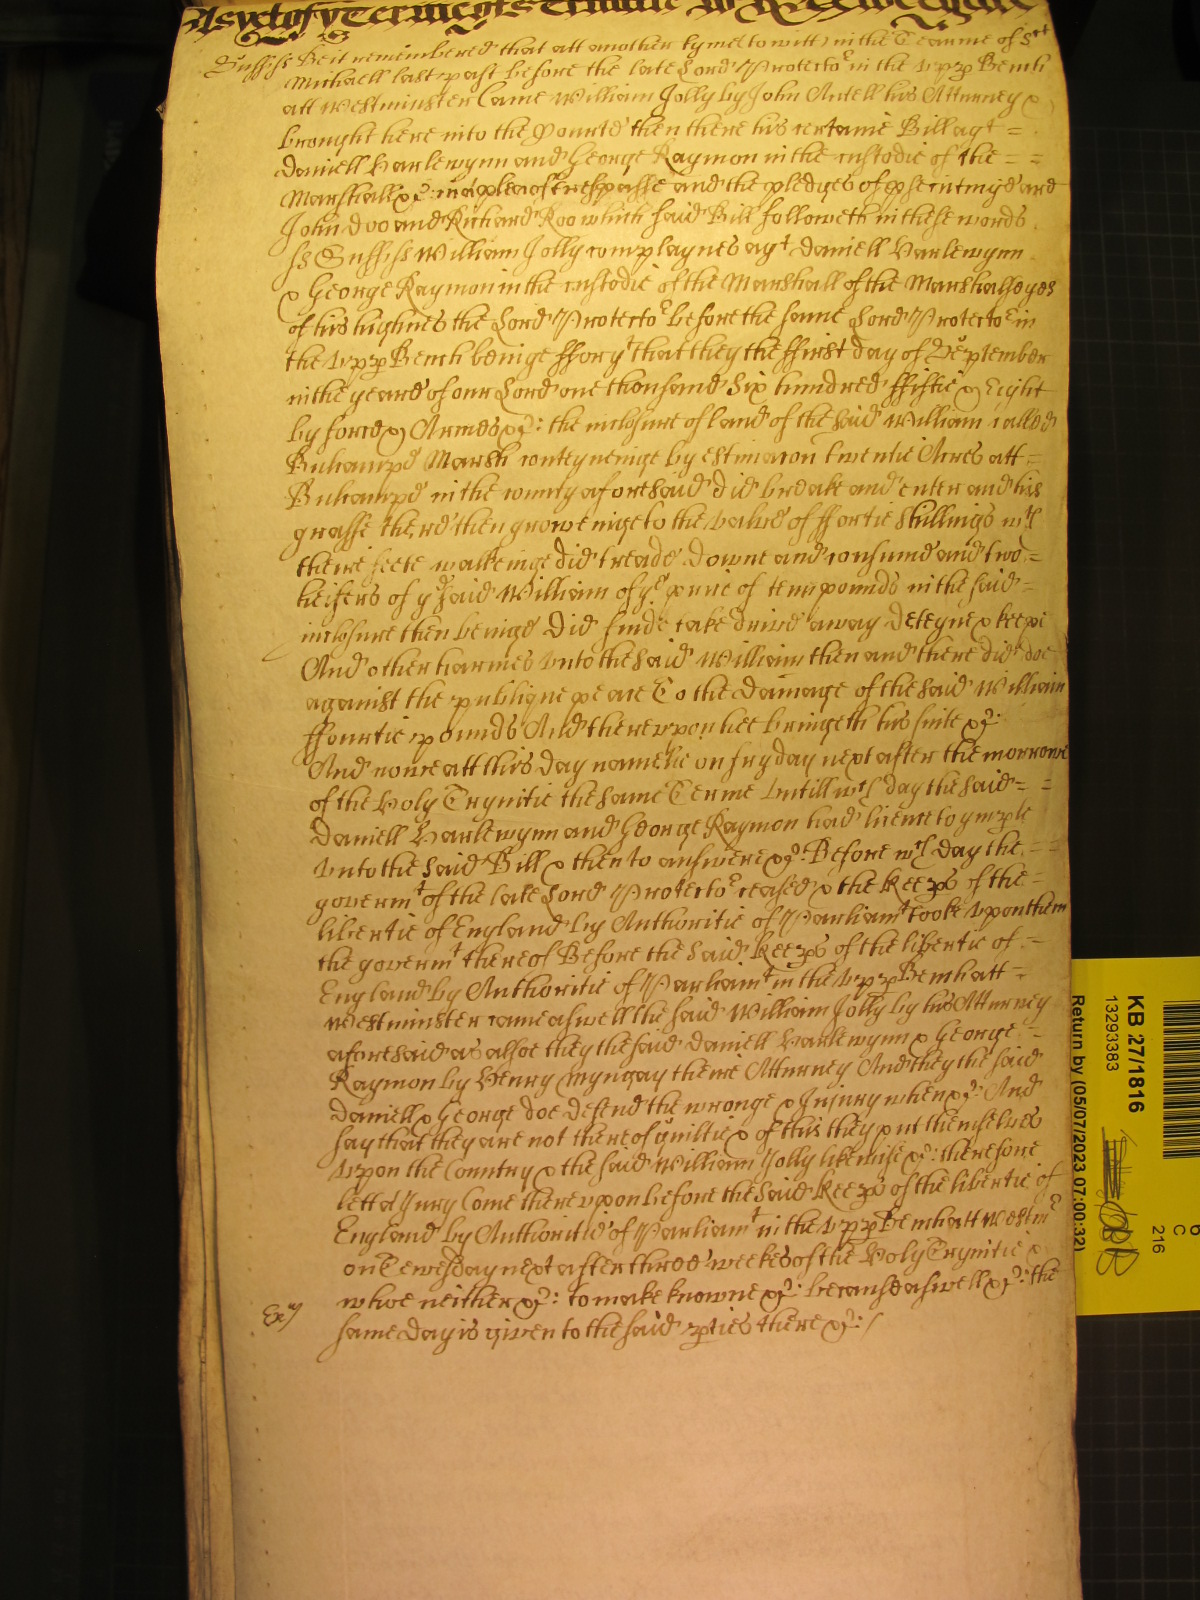 As yet of ye Terme of
Suff ss Be it remembered that att another tyme (to witt) in the Tearme of Snt
Michaell last past before the late Lord Protector in the upp Bench
att Westminster Came William Jolly by John Antell his Atturney &
brought here into the Courte then there his certaine Bill agt =
Daniell Harlewynn and George Raymon in the custodie of the = =
Marshall &c: in a plea of trespasse and the pledges of prosecuting are
John doo and Richard Roo which said Bill followeth in these words
ss Suff ss William Jolly complaynes agt Daniell Harlewynn
& George Raymon in the custodie of the Marshall of the Marshalseyes
of his highnes the Lord Protector before the same Lord Protector in
the upp Bench beinge ffor yt that they the ffirst day of September
in the yeare of our Lord one thousand six hundred ffiftie & eight
by force & Armes &c: the inclosure of land of the said William called
Marsh conteyneinge by estimacon twentie Acres att =
in the county aforesaid did breake and enter and his
grasse there then groweinge to the value of ffortie shillings wth
theire feete walkeinge did treade downe and consume and two =
heifers of ye said William of ye price of tenn pounds in the said =
inclosure then beinge did finde take drive away deteyne & keepe
And other harmes unto the said William then and there did doe
against the publique peace To the damage of the said William
ffourtie pounds And thereupon hee bringeth his suite &c:
And nowe att this day namelie on fryday next after the morrowe
of the Holy Trynitie the same Terme untill wch day the said = =
Daniell Harlewynn and George Raymon had licence to ymple
unto the said Bill & then to answere &c: Before wch day the = =
governt of the late Lord Protector ceased & the Keeps of the =
libertie of England by Authoritie of Parliamt tooke upon them
the governt thereof Before the said Keeps of the libertie of =
England by Authoritie of Parliamt in the upp Bench att =
Westminster came aswell the said William Jolly by his Atturney
aforesaid as alsoe they the said Daniell Harlewynn & George =
Raymon by Henry Myngay theire Atturney And they the said
Daniell & George doe defend the wronge & Injury when &c: And
say that they are not thereof guiltie & of this they put themselves
upon the Country & the said William Jolly likewise &c: therefore
lett a Jury Come thereupon before the said Keeps of the libertie of
England by Authoritie of Parliamt in the upp Bench att Westmr
on Tewesday next after three weekes of the Holy Trynitie &
whoe neither &c: to make knowne &c: because aswell &c: the
same day is given to the said pties there &c: /
KB 27/1816
13293383
Return by (05/07/2023 07:00:32)
C
216